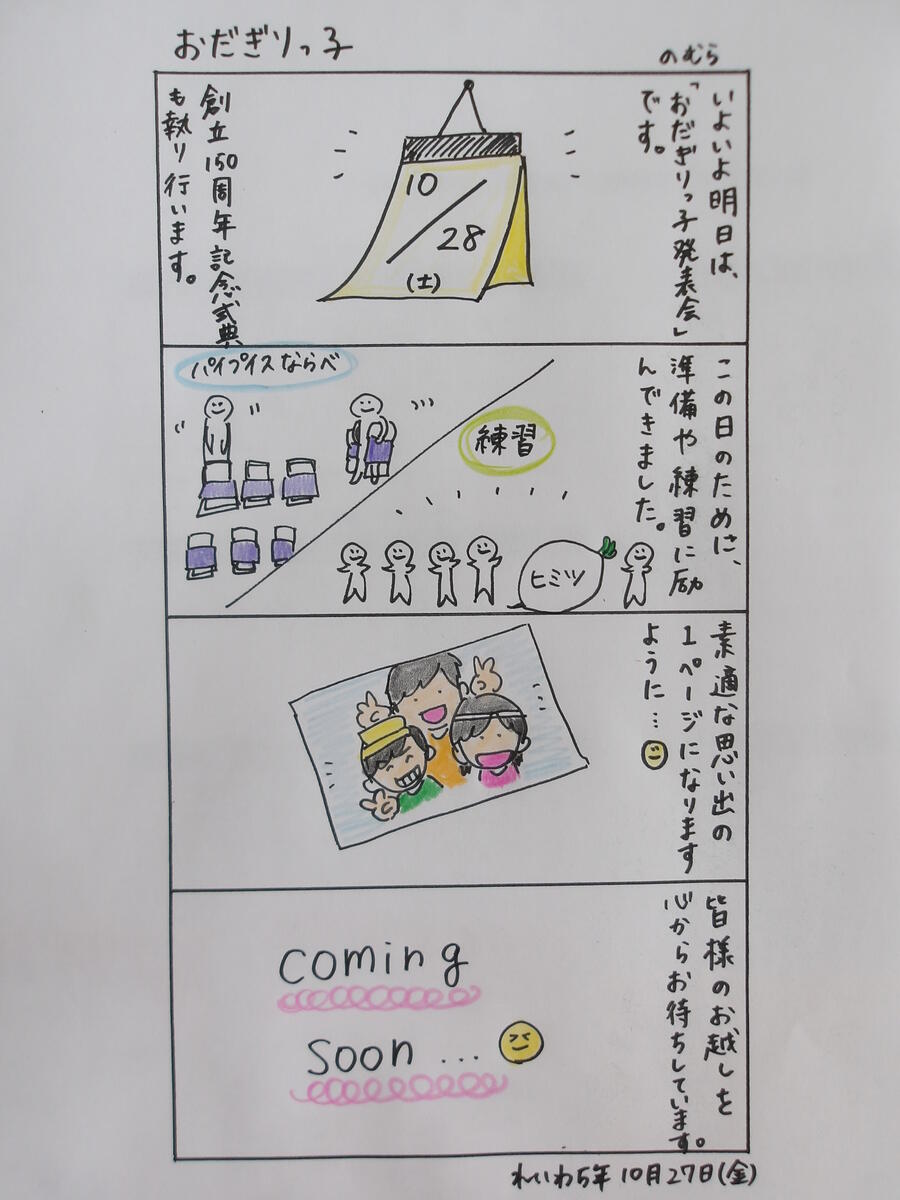 おだぎりっ子
のむら
いよいよ明日は、
「おだぎりっ子発表会」
です。
10/28
(土)
創立150周年記念式典
も執り行います。
この日のために、
準備や練習に励
んできました。
パイプイスならべ
練習
ヒミツ
素適な思い出の
1ページになります
ように…
皆様のお越しを
心からお待ちしています。
coming
soon ...
れいわ5年10月27日(金)